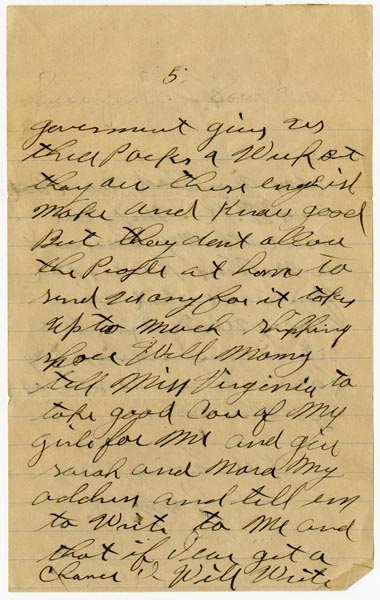 5
goverment gives us
three Packs a Week but
they are these english
make and Know good
But they dont allow
the People at home to
send us any for it takes
up to much shipping
space Well Momy
tell Miss Virginia to
take good Care of My
girls for Me and give
sarah and Mora My
address and tell em
to Write to Me and
that if I ever get a
Chance I Will Write